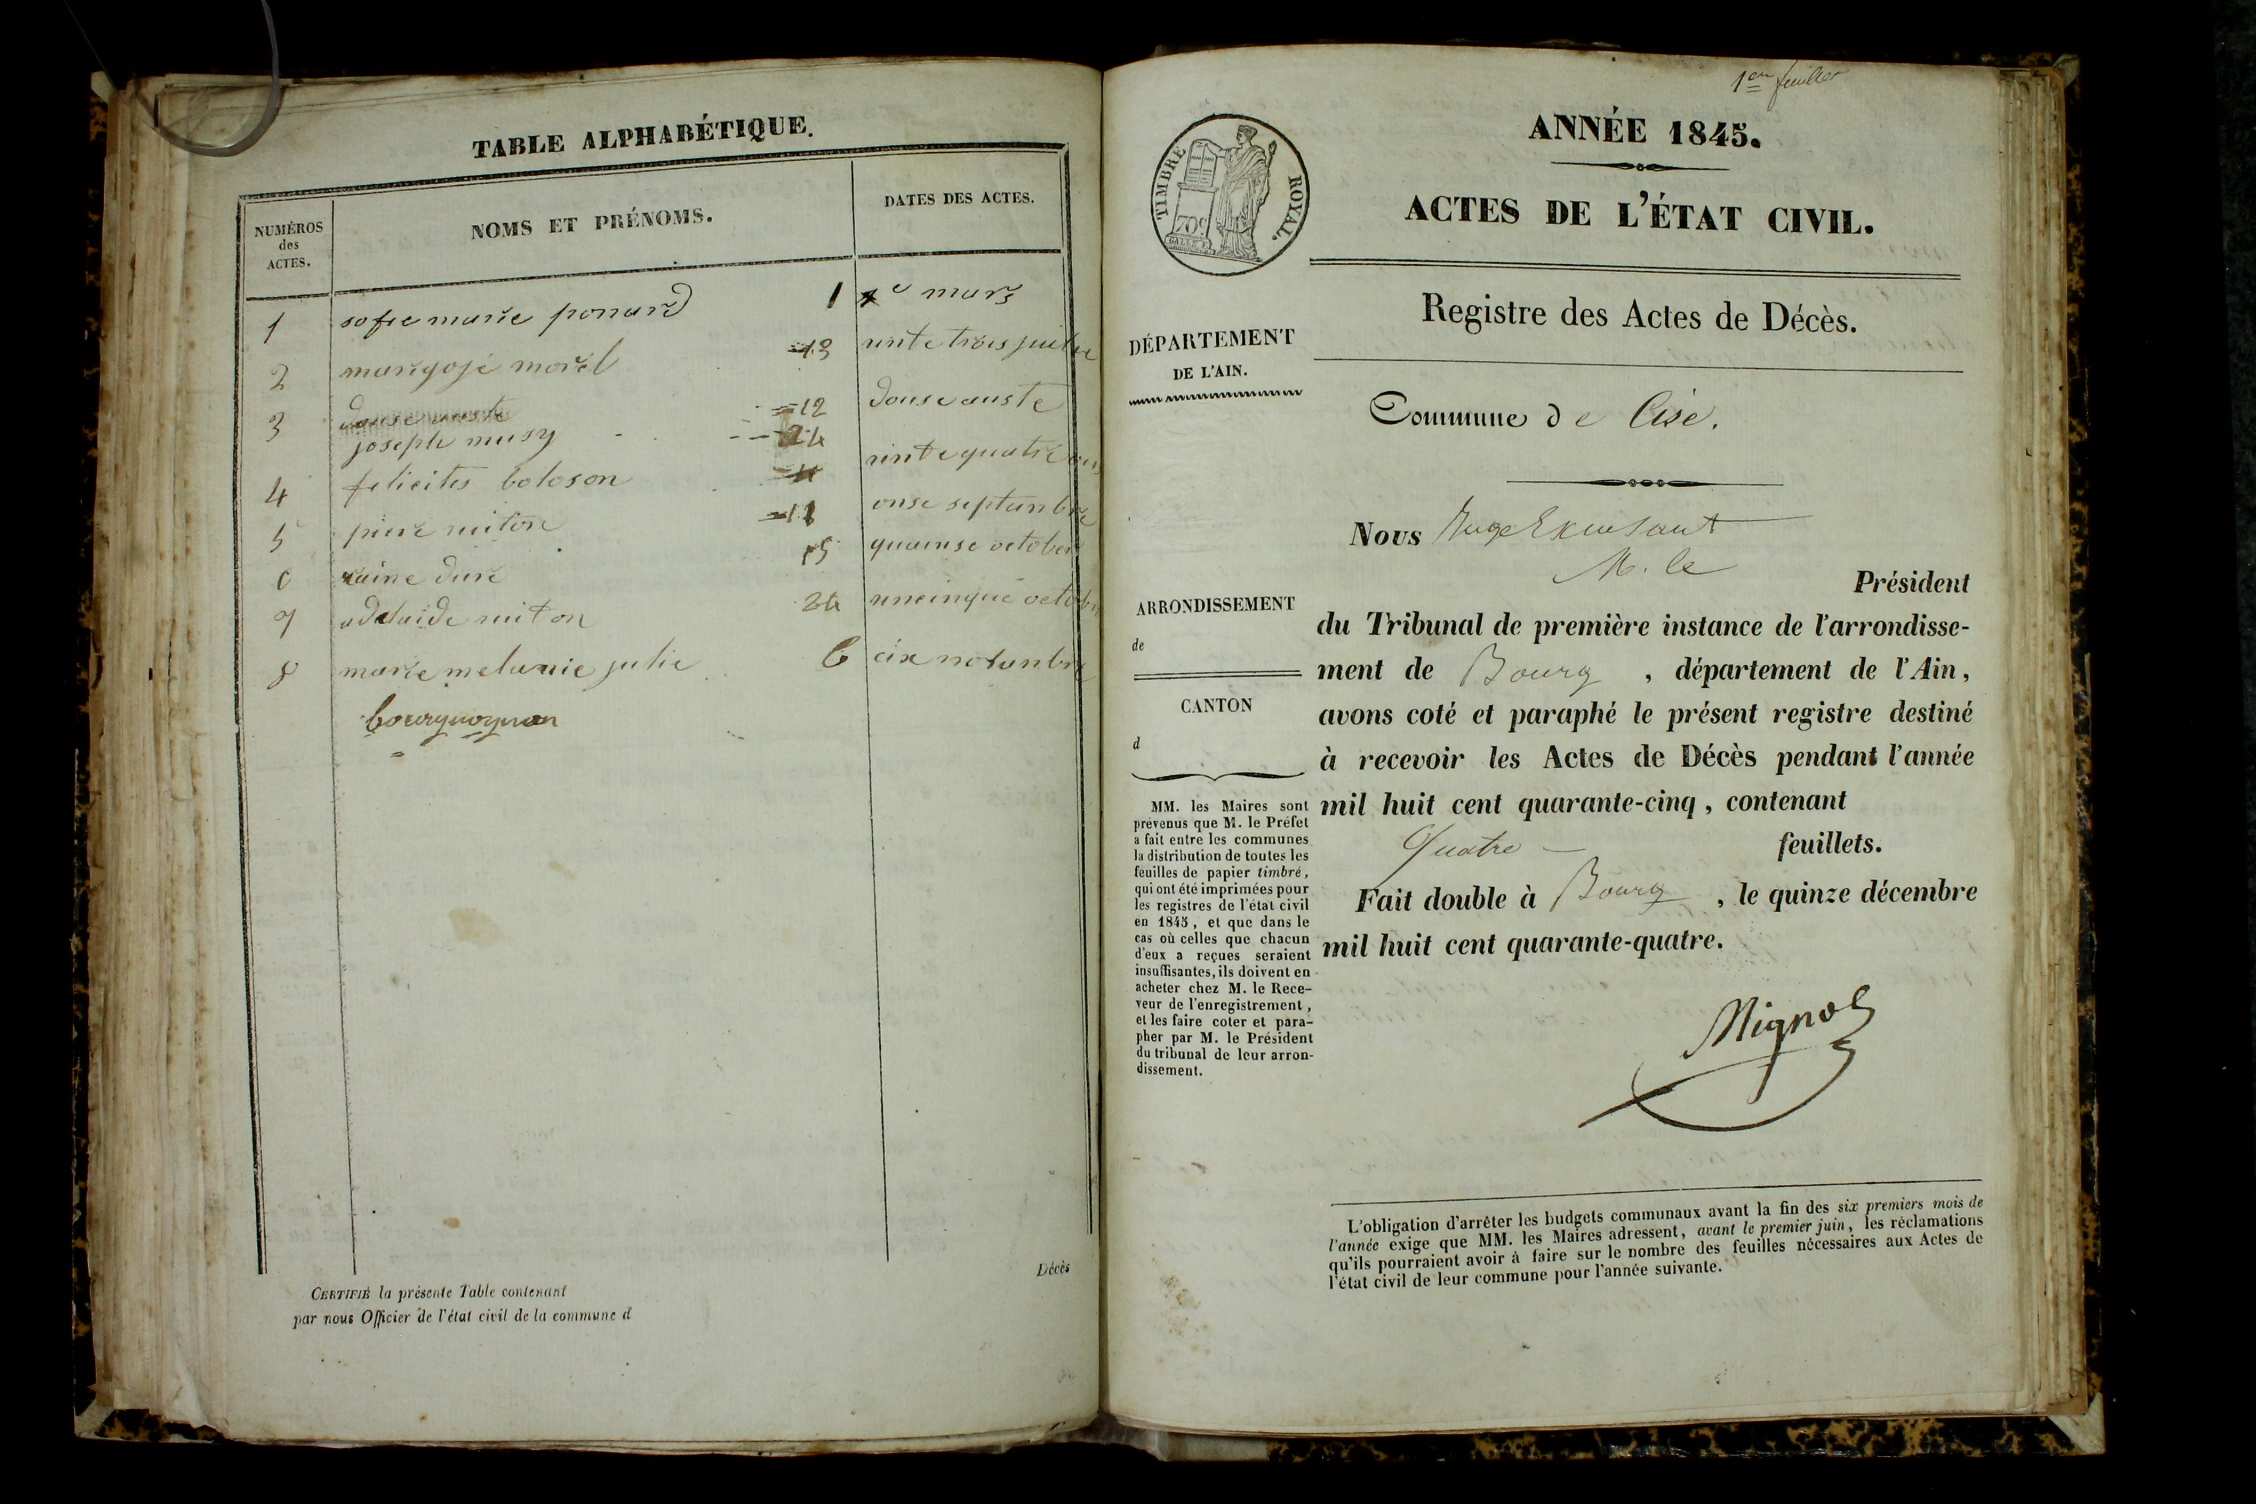 TABLE ALPHABÉTIQUE.
NUMÉROS
des
ACTES.
NOMS ET PRÉNOMS.
DATES DES ACTES.
1 sofie marie ponard 1 mars
2 morel 23 vinte trois
3 douse auste 12 douse auste
joseph musy 24
4 felicites boloson vinte quatre
5 piere miton 11 onse septanbre
6 raine dure 15 quainse octobre
7 adelaide miton 24 octobre
8 marie melanie julie 6 cix novanbre
CERTIFIÉ la présente Table contenant
par nous Officier de l'état civil de la commune d
Décès
1er feuillet
TIMBRE ROYAL.
70c
ANNÉE 1845.
ACTES DE L'ÉTAT CIVIL.
Registre des Actes de Décès.
DÉPARTEMENT
DE L'AIN.
Commune de Cise.
Nous
M. le
Président
ARRONDISSEMENT
de
CANTON
d
du Tribunal de première instance de l'arrondisse-
ment de Bourg, département de l'Ain,
avons coté et paraphé le présent registre destiné
à recevoir les Actes de Décès pendant l'année
mil huit cent quarante-cinq, contenant
Quatre — feuillets.
Fait double à Bourg, le quinze décembre
mil huit cent quarante-quatre.
MM. les Maires sont
prévenus que M. le Préfet
a fait entre les communes
la distribution de toutes les
feuilles de papier timbré,
qui ont été imprimées pour
les registres de l'état civil
en 1845, et que dans le
cas où celles que chacun
d'eux a reçues seraient
insuffisantes, ils doivent en
acheter chez M. le Rece-
veur de l'enregistrement,
et les faire coter et para-
pher par M. le Président
du tribunal de leur arron-
dissement.
L'obligation d'arrêter les budgets communaux avant la fin des six premiers mois de
l'année exige que MM. les Maires adressent, avant le premier juin, les réclamations
qu'ils pourraient avoir à faire sur le nombre des feuilles nécessaires aux Actes de
l'état civil de leur commune pour l'année suivante.